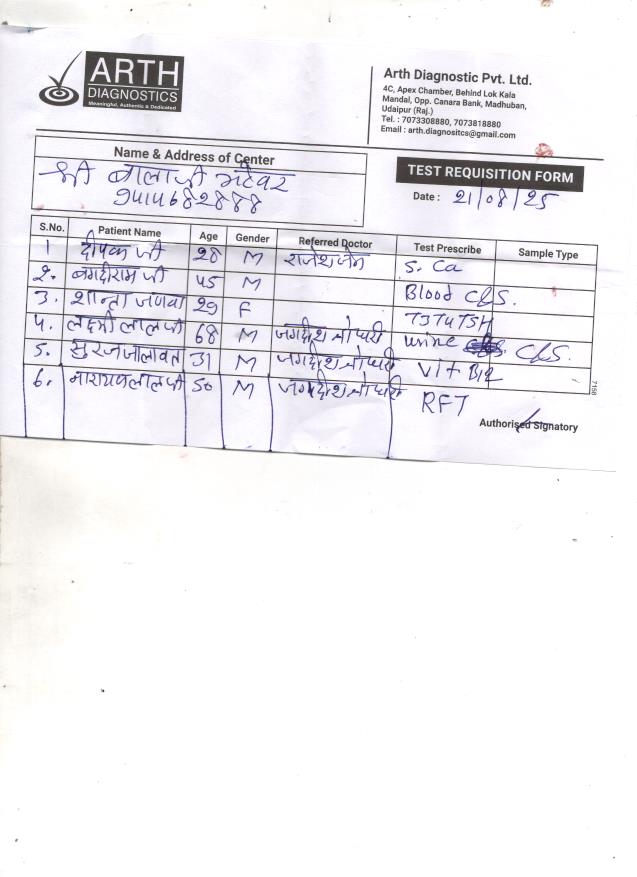 ARTH
DIAGNOSTICS
Meaningful, Authentic & Dedicated
Arth Diagnostic Pvt. Ltd.
4C, Apex Chamber, Behind Lok Kala
Mandal, Opp. Canara Bank, Madhuban,
Udaipur (Raj.)
Tel. : 7073308880, 7073818880
Email : arth.diagnositcs@gmail.com
Name & Address of Center
श्री बालाजी भटेवर
9414682888
TEST REQUISITION FORM
Date : 21/08/25
S.No. Patient Name Age Gender Referred Doctor Test Prescribe Sample Type
1 दीपक जी 28 M राजेश जैन S. Ca
2. बगदीराम जी 45 M Blood C&S.
3. शान्ता जणवा 29 F T3T4TSH
4. लक्ष्मी लाल जी 68 M जगदीश चौधरी urine C&S.
5. सुरज जालावत 31 M जगदीश चौधरी Vit B12
6. नारायणलाल जी 50 M जगदीश चौधरी RFT
7158
Authorised Signatory